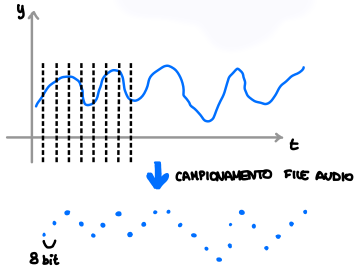 y
t
CAMPIONAMENTO FILE AUDIO
8 bit